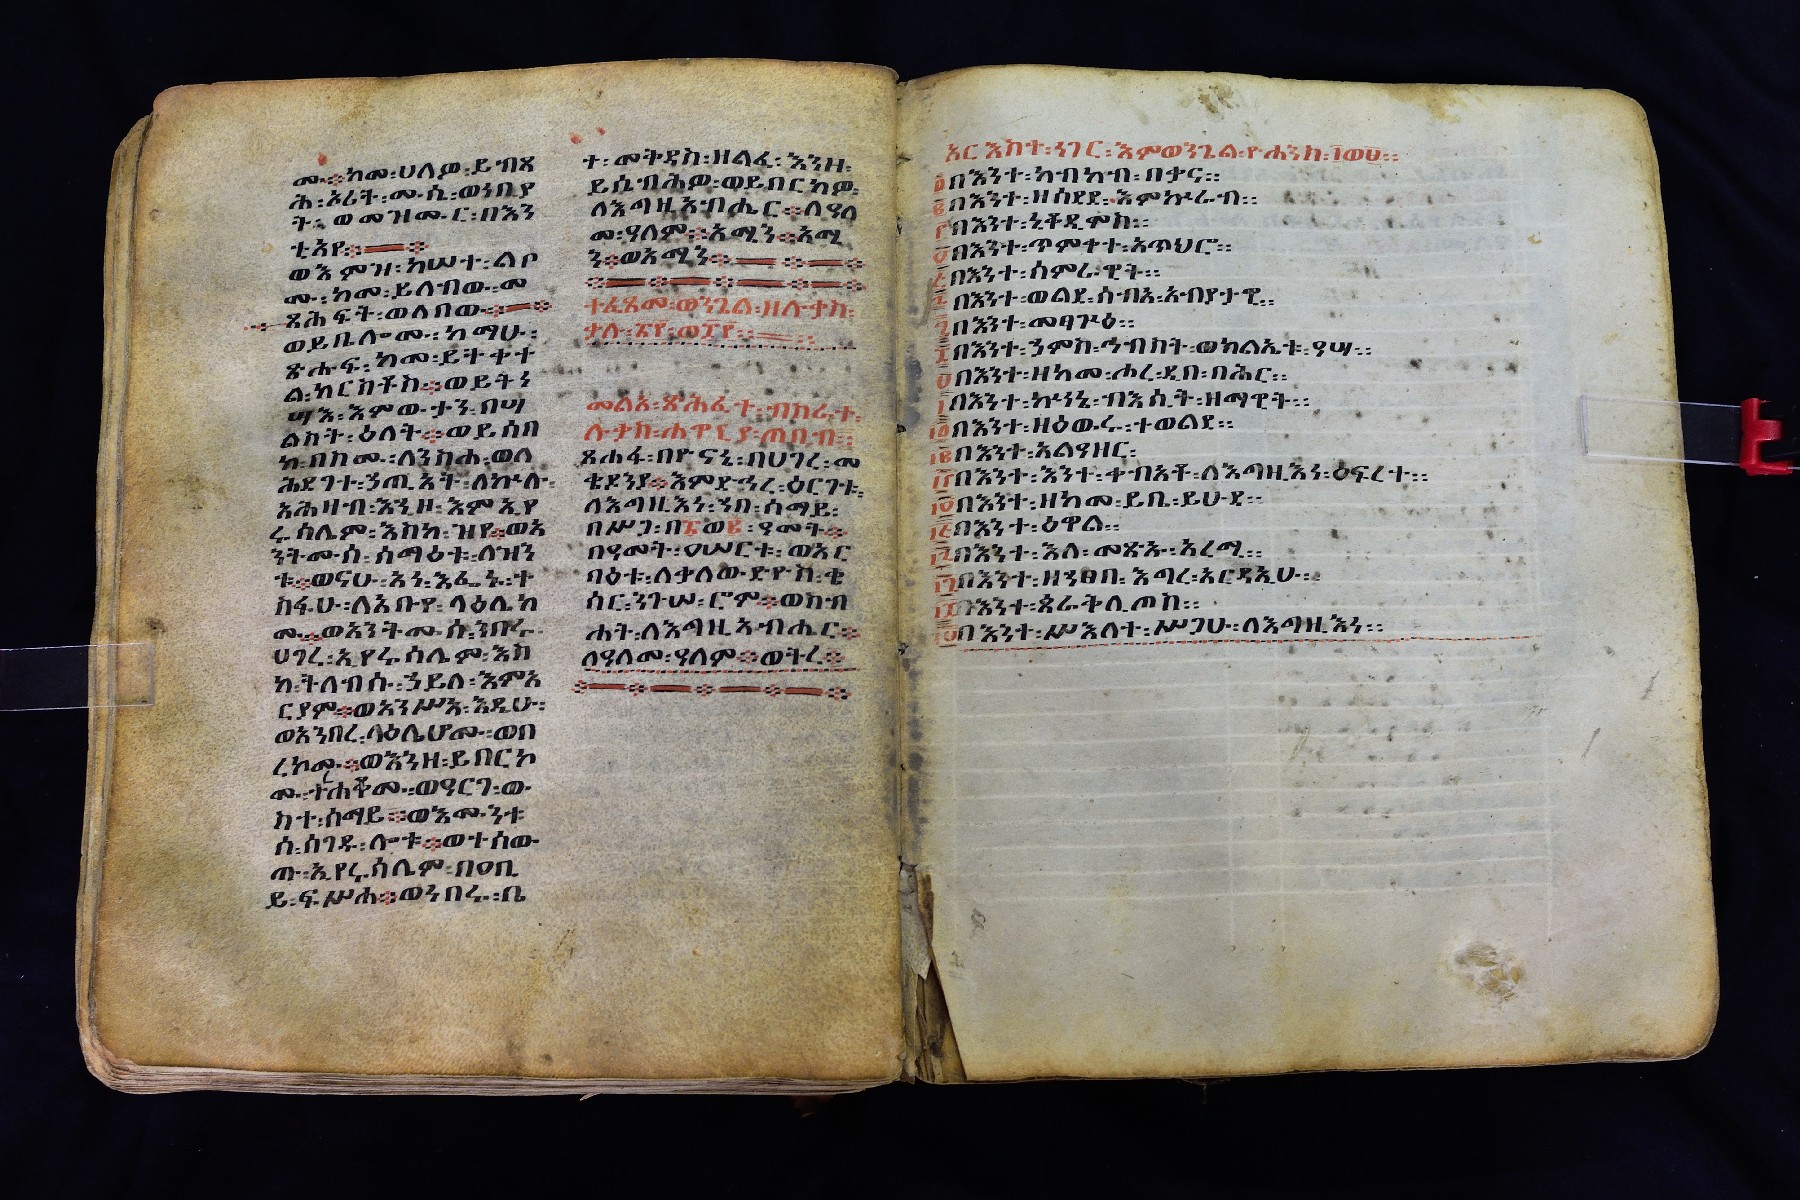 ሙ፡ከመ፡ሀለዎ፡ይብጻ
ሕ፡ኦሪት፡ሙሴ፡ወነቢያ
ት፡ወመዝሙር፡በእን
ቲአየ።
ወእምዝ፡ከሠተ፡ልቦ
ሙ፡ከመ፡ይለብው፡መ
ጻሕፍት፡ወለበው።
ወይቤሎሙ፡ከማሁ፡
ጽሑፍ፡ከመ፡ይትቀተ
ል፡ክርስቶስ፡ወይትነ
ሣእ፡እምውታን፡በሣ
ልስት፡ዕለት፡ወይሰብ
ኩ፡በስሙ፡ለንስሐ፡ወለ
ሕደገተ፡ኃጢአት፡ለኵሉ፡
አሕዛብ፡እኂዘ፡እምኢየ
ሩሳሌም፡እስከ፡ዝየ፡ወአ
ንትሙሰ፡ሰማዕቱ፡ለዝን
ቱ፡ወናሁ፡አነ፡እፌኑ፡ተ
ስፋሁ፡ለአቡየ፡ላዕሌክ
ሙ፡ወአንትሙሰ፡ንበሩ
ሀገረ፡ኢየሩሳሌም፡እስ
ከ፡ትለብሱ፡ኃይለ፡እምአ
ርያም፡ወአንሥአ፡እዴሁ፡
ወአንበረ፡ላዕሌሆሙ፡ወባ
ረኮሙ፡ወእንዘ፡ይባርኮ
ሙ፡ተሐቆሙ፡ወዓርገ፡ው
ስተ፡ሰማይ፡ወእሙንቱ
ሰ፡ሰገዱ፡ሎቱ፡ወተሰው
ጡ፡ኢየሩሳሌም፡በዐቢ
ይ፡ፍሥሐ፡ወነበሩ፡ቤ
ተ፡መቅደስ፡ዘልፈ፡እንዘ፡
ይሴብሕዎ፡ወይባርክዎ፡
ለእግዚአብሔር፡ለዓለ
መ፡ዓለም፡አሜን፡አሜ
ን፡ወአሜን።
ተፈጸመ፡ወንጌል፡ዘሉቃስ፡
ቃሉ፡
መልአ፡ጽሕፈተ፡ብስራተ፡
ሉቃስ፡ሐዋርያ፡ጠቢብ።
ጸሐፋ፡በዮናኒ፡በሀገረ፡መ
ቄዶንያ፡እምድኅረ፡ዕርገቱ፡
ለእግዚእነ፡ኀበ፡ሰማይ፡
በሥጋ፡በ፳ወ፪፡ዓመት፡
በዓመት፡ዐሠርቱ፡ወአር
ባዕቱ፡ለቃለውድዮስ፡ቄ
ሳር፡ንጉሠ፡ሮም፡ወስብ
ሐት፡ለእግዚአብሔር፡
ለዓለመ፡ዓለም፡ወትረ፡
አርእስተ፡ነገር፡እምወንጌል፡ዮሐንስ፡፲ወ፱።
፩በእንተ፡ከብካብ፡በቃና።
፪በእንተ፡ዘሰደደ፡እምኵራብ።
፫በእንተ፡ኒቆዲሞስ።
፬በእንተ፡ጥምቀተ፡አጥህሮ።
፭በእንተ፡ሳምራዊት።
፮በእንተ፡ወልደ፡ሰብአ፡አብያታዊ።
፯በእንተ፡መፃጕዕ።
፰በእንተ፡ኀምስ፡ኅብስት፡ወክልኤቱ፡ዓሣ።
፱በእንተ፡ዘከመ፡ሖረ፡ዲበ፡ባሕር።
፲በእንተ፡ኵነኔ፡ብእሲት፡ዘማዊት።
፲፩በእንተ፡ዘዕውሩ፡ተወልደ።
፲፪በእንተ፡አልዓዘር።
፲፫በእንተ፡እንተ፡ቀብአቶ፡ለእግዚእነ፡ዕፍረተ።
፲፬በእንተ፡ዘከመ፡ይቤ፡ይሁዳ።
፲፭በእንተ፡ዕዋል።
፲፮በእንተ፡እለ፡መጽኡ፡አረሚ።
፲፯በእንተ፡ዘኀፀበ፡እግረ፡አርዳኢሁ።
፲፰በእንተ፡ጰራቅሊጦስ።
፲፱በእንተ፡ሥእለተ፡ሥጋሁ፡ለእግዚእነ።